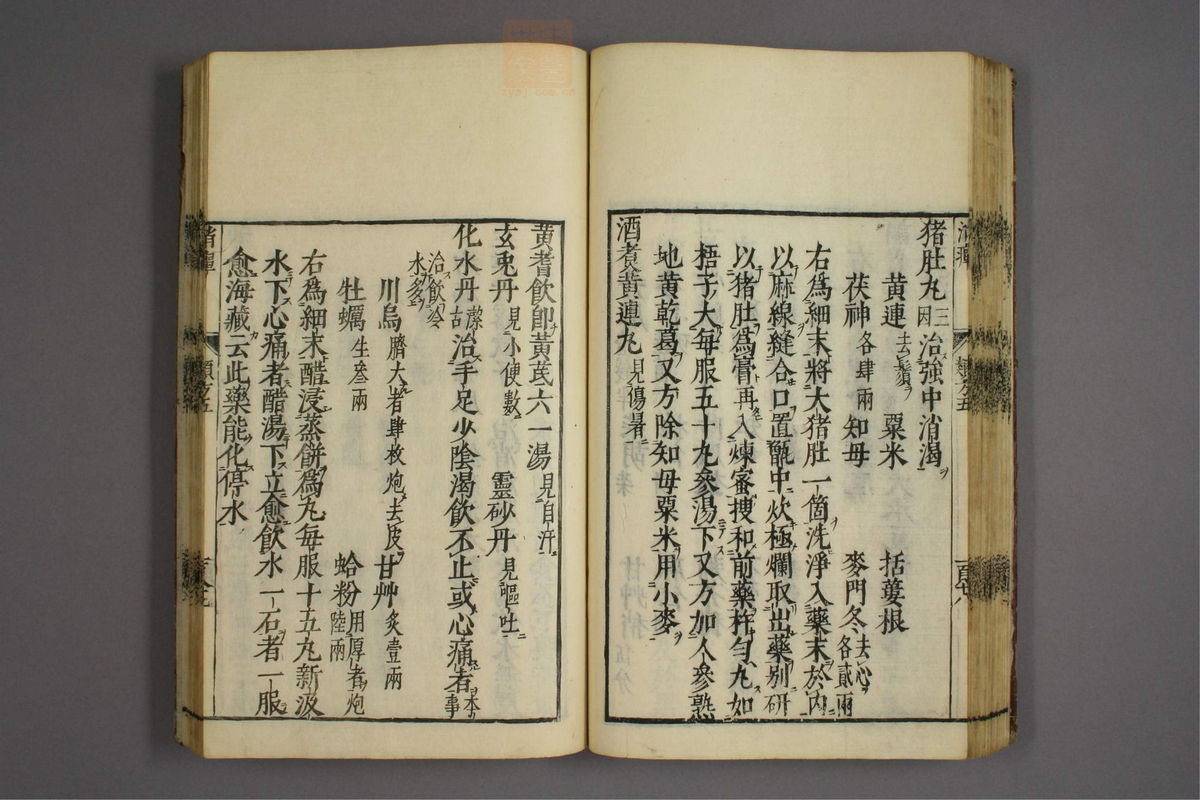 猪肚丸三因治強中消渴
黄連去鬚 粟米 括蔞根
茯神各肆兩 知母 麥門冬去心各貳兩
右爲細末將大猪肚一箇洗淨入藥末於内
以麻線縫合口置甑中炊極爛取出藥別研
以猪肚爲膏再入煉蜜搜和前藥杵勻丸如
梧子大每服五十丸參湯下又方加人參熟
地黄乾葛又方除知母粟米用小麥
酒煮黄連丸見傷暑
黄耆飲卽黄芪六一湯見自汗
玄兎丹見小便數 靈砂丹見嘔吐
化水丹治手足少陰渴飲不止或心痛者本事
治飲冷水多
川烏臍大者肆枚炮去皮 甘艸炙壹兩
牡蠣生叁兩 蛤粉用厚者炮陸兩
右爲細末醋浸蒸餅爲丸每服十五丸新汲
水下心痛者醋湯下立愈飲水一石者一服
愈海藏云此藥能化停水